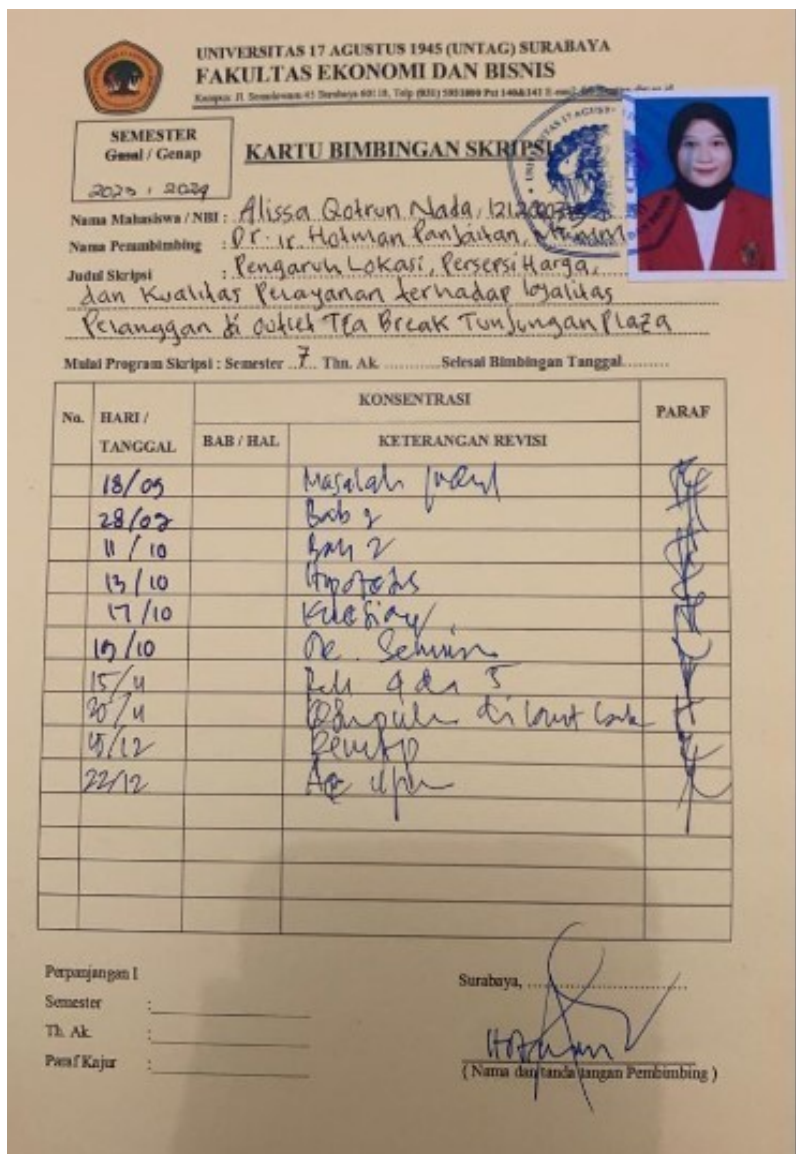 UNIVERSITAS 17 AGUSTUS 1945 (UNTAG) SURABAYA
FAKULTAS EKONOMI DAN BISNIS
Kampus: Jl. Semolowaru 45 Surabaya 60118, Telp (031) 5931800 Pst 140&141
SEMESTER
Gasal / Genap
2023 / 2024
KARTU BIMBINGAN SKRIPSI
Nama Mahasiswa / NBI : Alissa Qotrun Nada,
Nama Pembimbing : Dr. Ir. Hotman Panjaitan,
Judul Skripsi : Pengaruh Lokasi, Persepsi Harga,
dan Kualitas Pelayanan terhadap loyalitas
Pelanggan di outlet Tea Break Tunjungan Plaza
Mulai Program Skripsi : Semester 7 Thn. Ak. Selesai Bimbingan Tanggal
KONSENTRASI
No. HARI / TANGGAL BAB / HAL KETERANGAN REVISI PARAF
18/09 Masalah
Bab
11 / 10 Bab 2
13 / 10 Hipotesis
17 / 10
19 / 10
15/11 Bab 4 dan 5
20/11
/12
22/12 Acc
Perpanjangan I
Semester :
Th. Ak. :
Paraf Kajur :
Surabaya,
Hotman
( Nama dan tanda tangan Pembimbing )